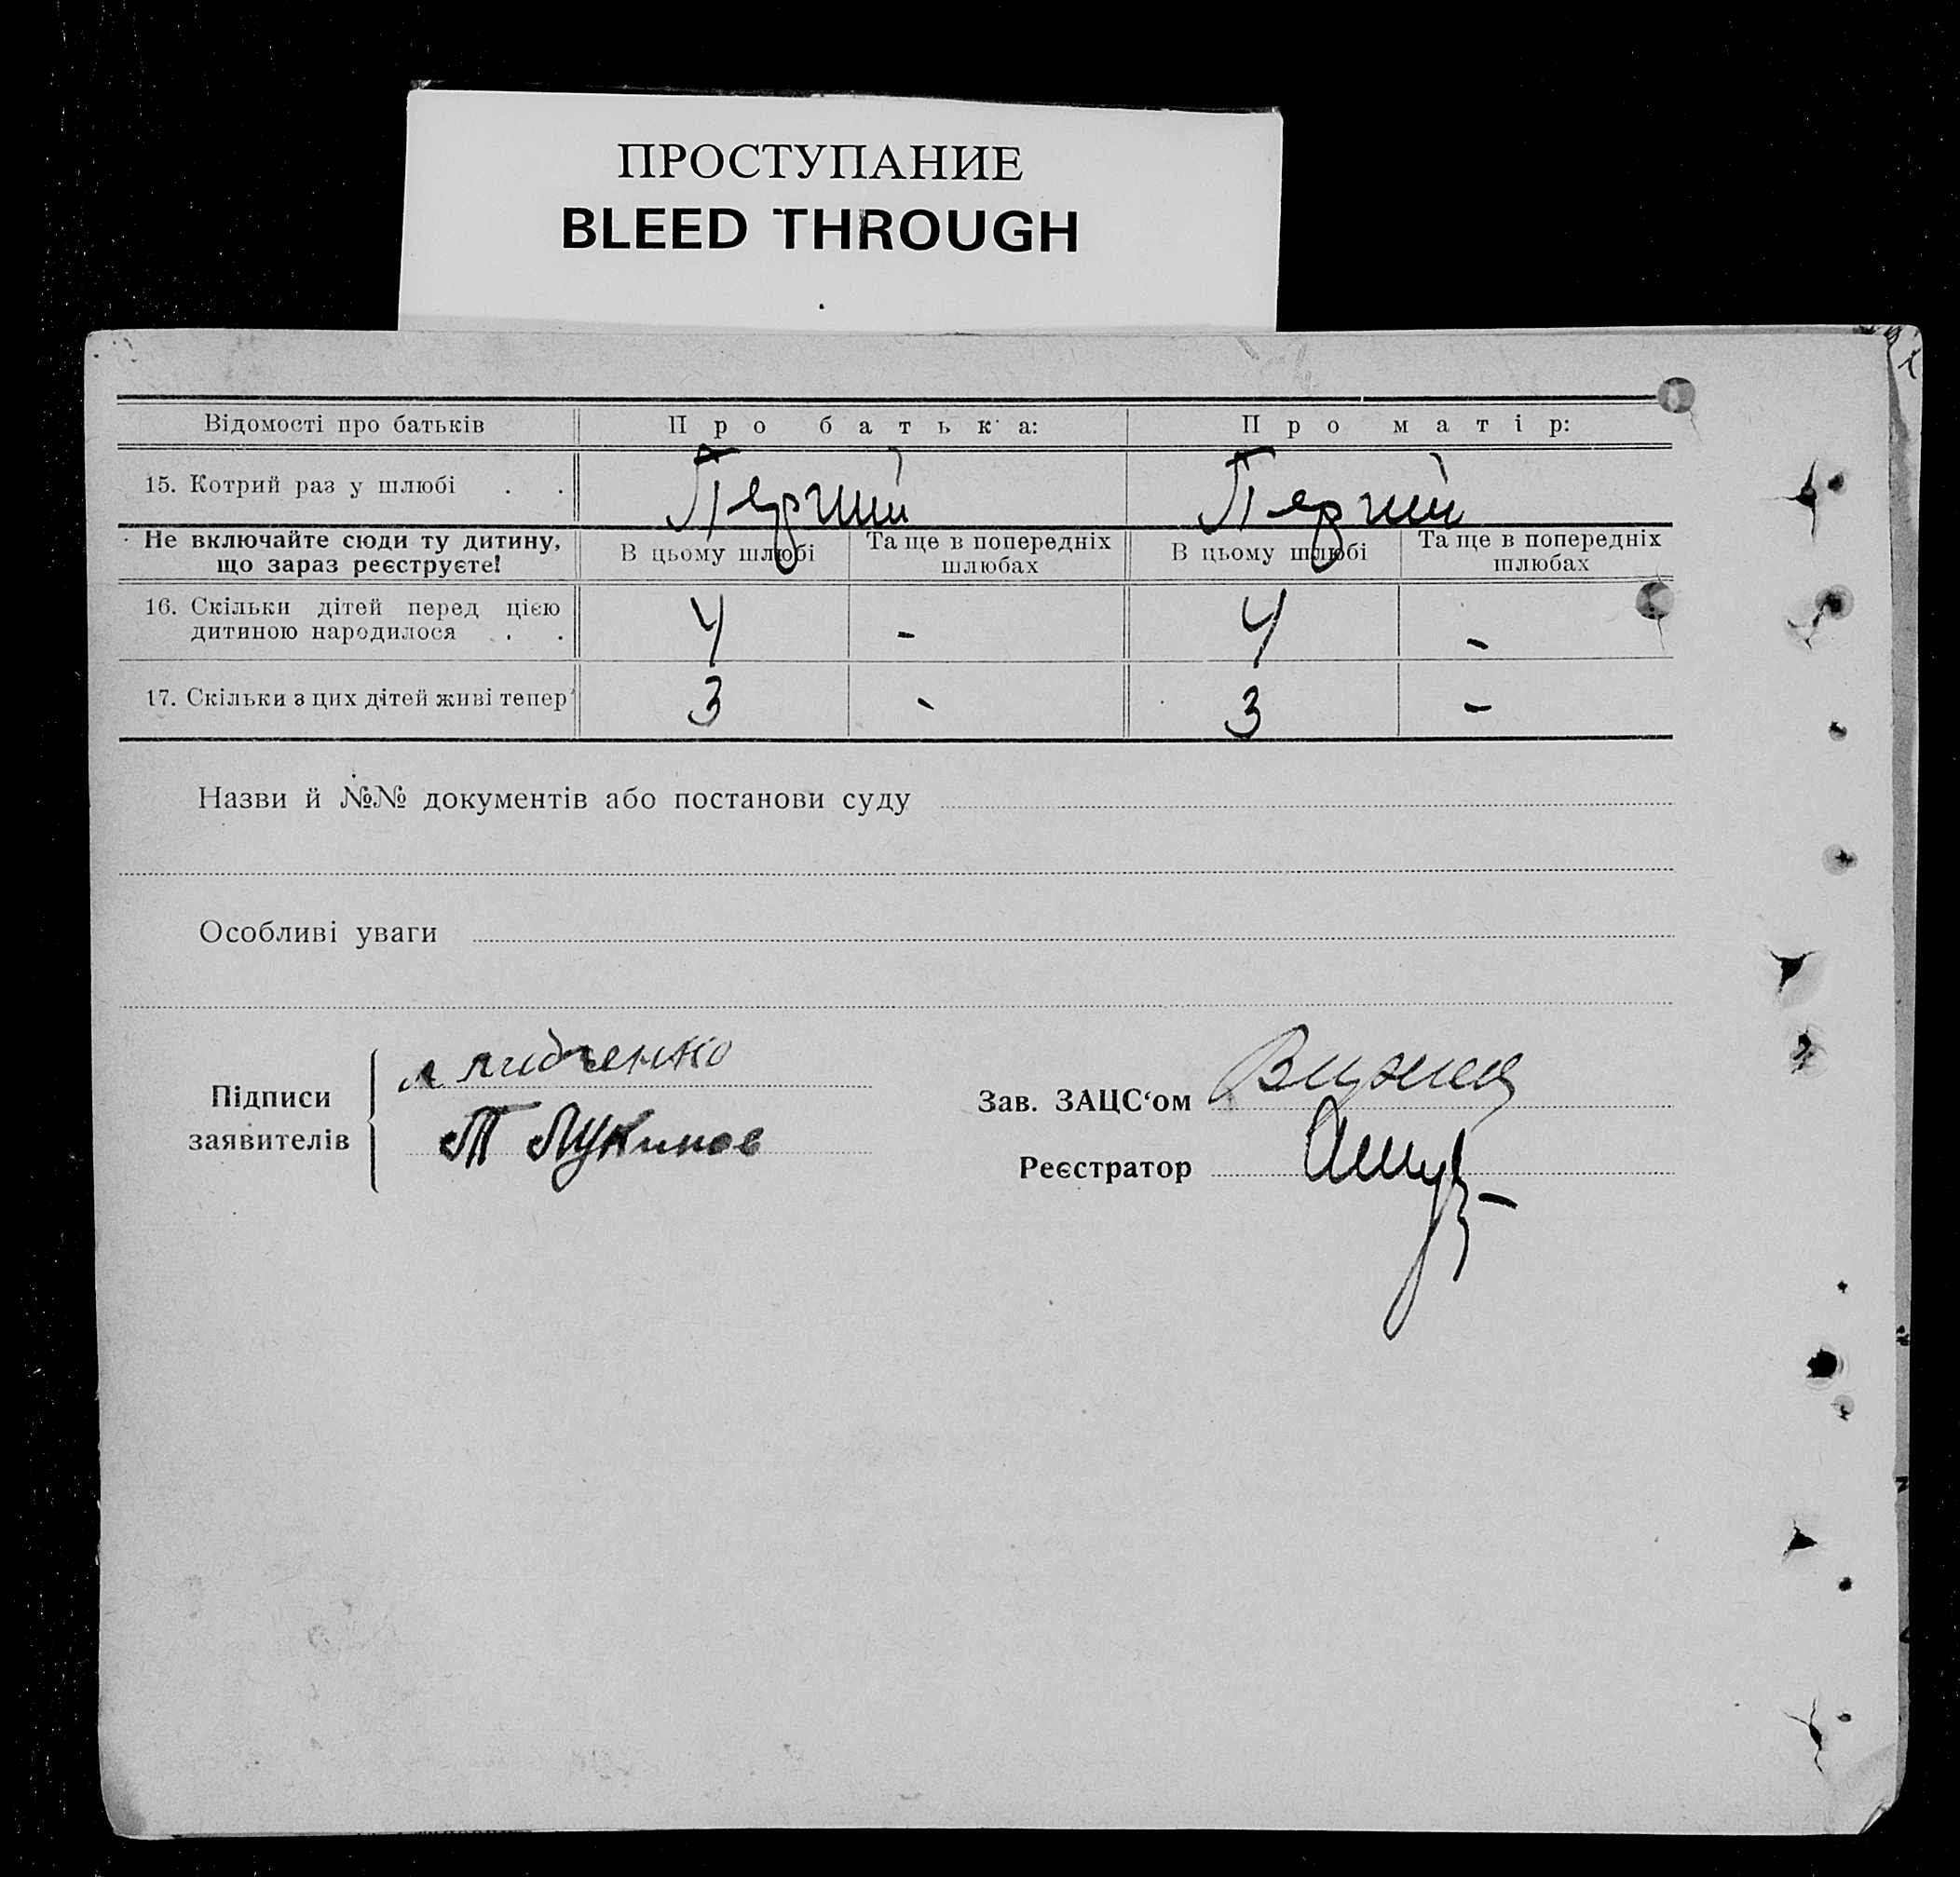 ПРОСТУПАНИЕ
BLEED THROUGH
Відомості про батьків Про батька: Про матір:
15. Котрий раз у шлюбі . . Перший Перший
Не включайте сюди ту дитину, що зараз реєструєте! В цьому шлюбі Та ще в попередніх шлюбах В цьому шлюбі Та ще в попередніх шлюбах
16. Скільки дітей перед цією дитиною народилося . . 4 - 4 -
17. Скільки з цих дітей живі тепер 3 - 3 -
Назви й №№ документів або постанови суду
Особливі уваги
Підписи заявителів
Т Лукинов
Зав. ЗАЦС‘ом
Реєстратор